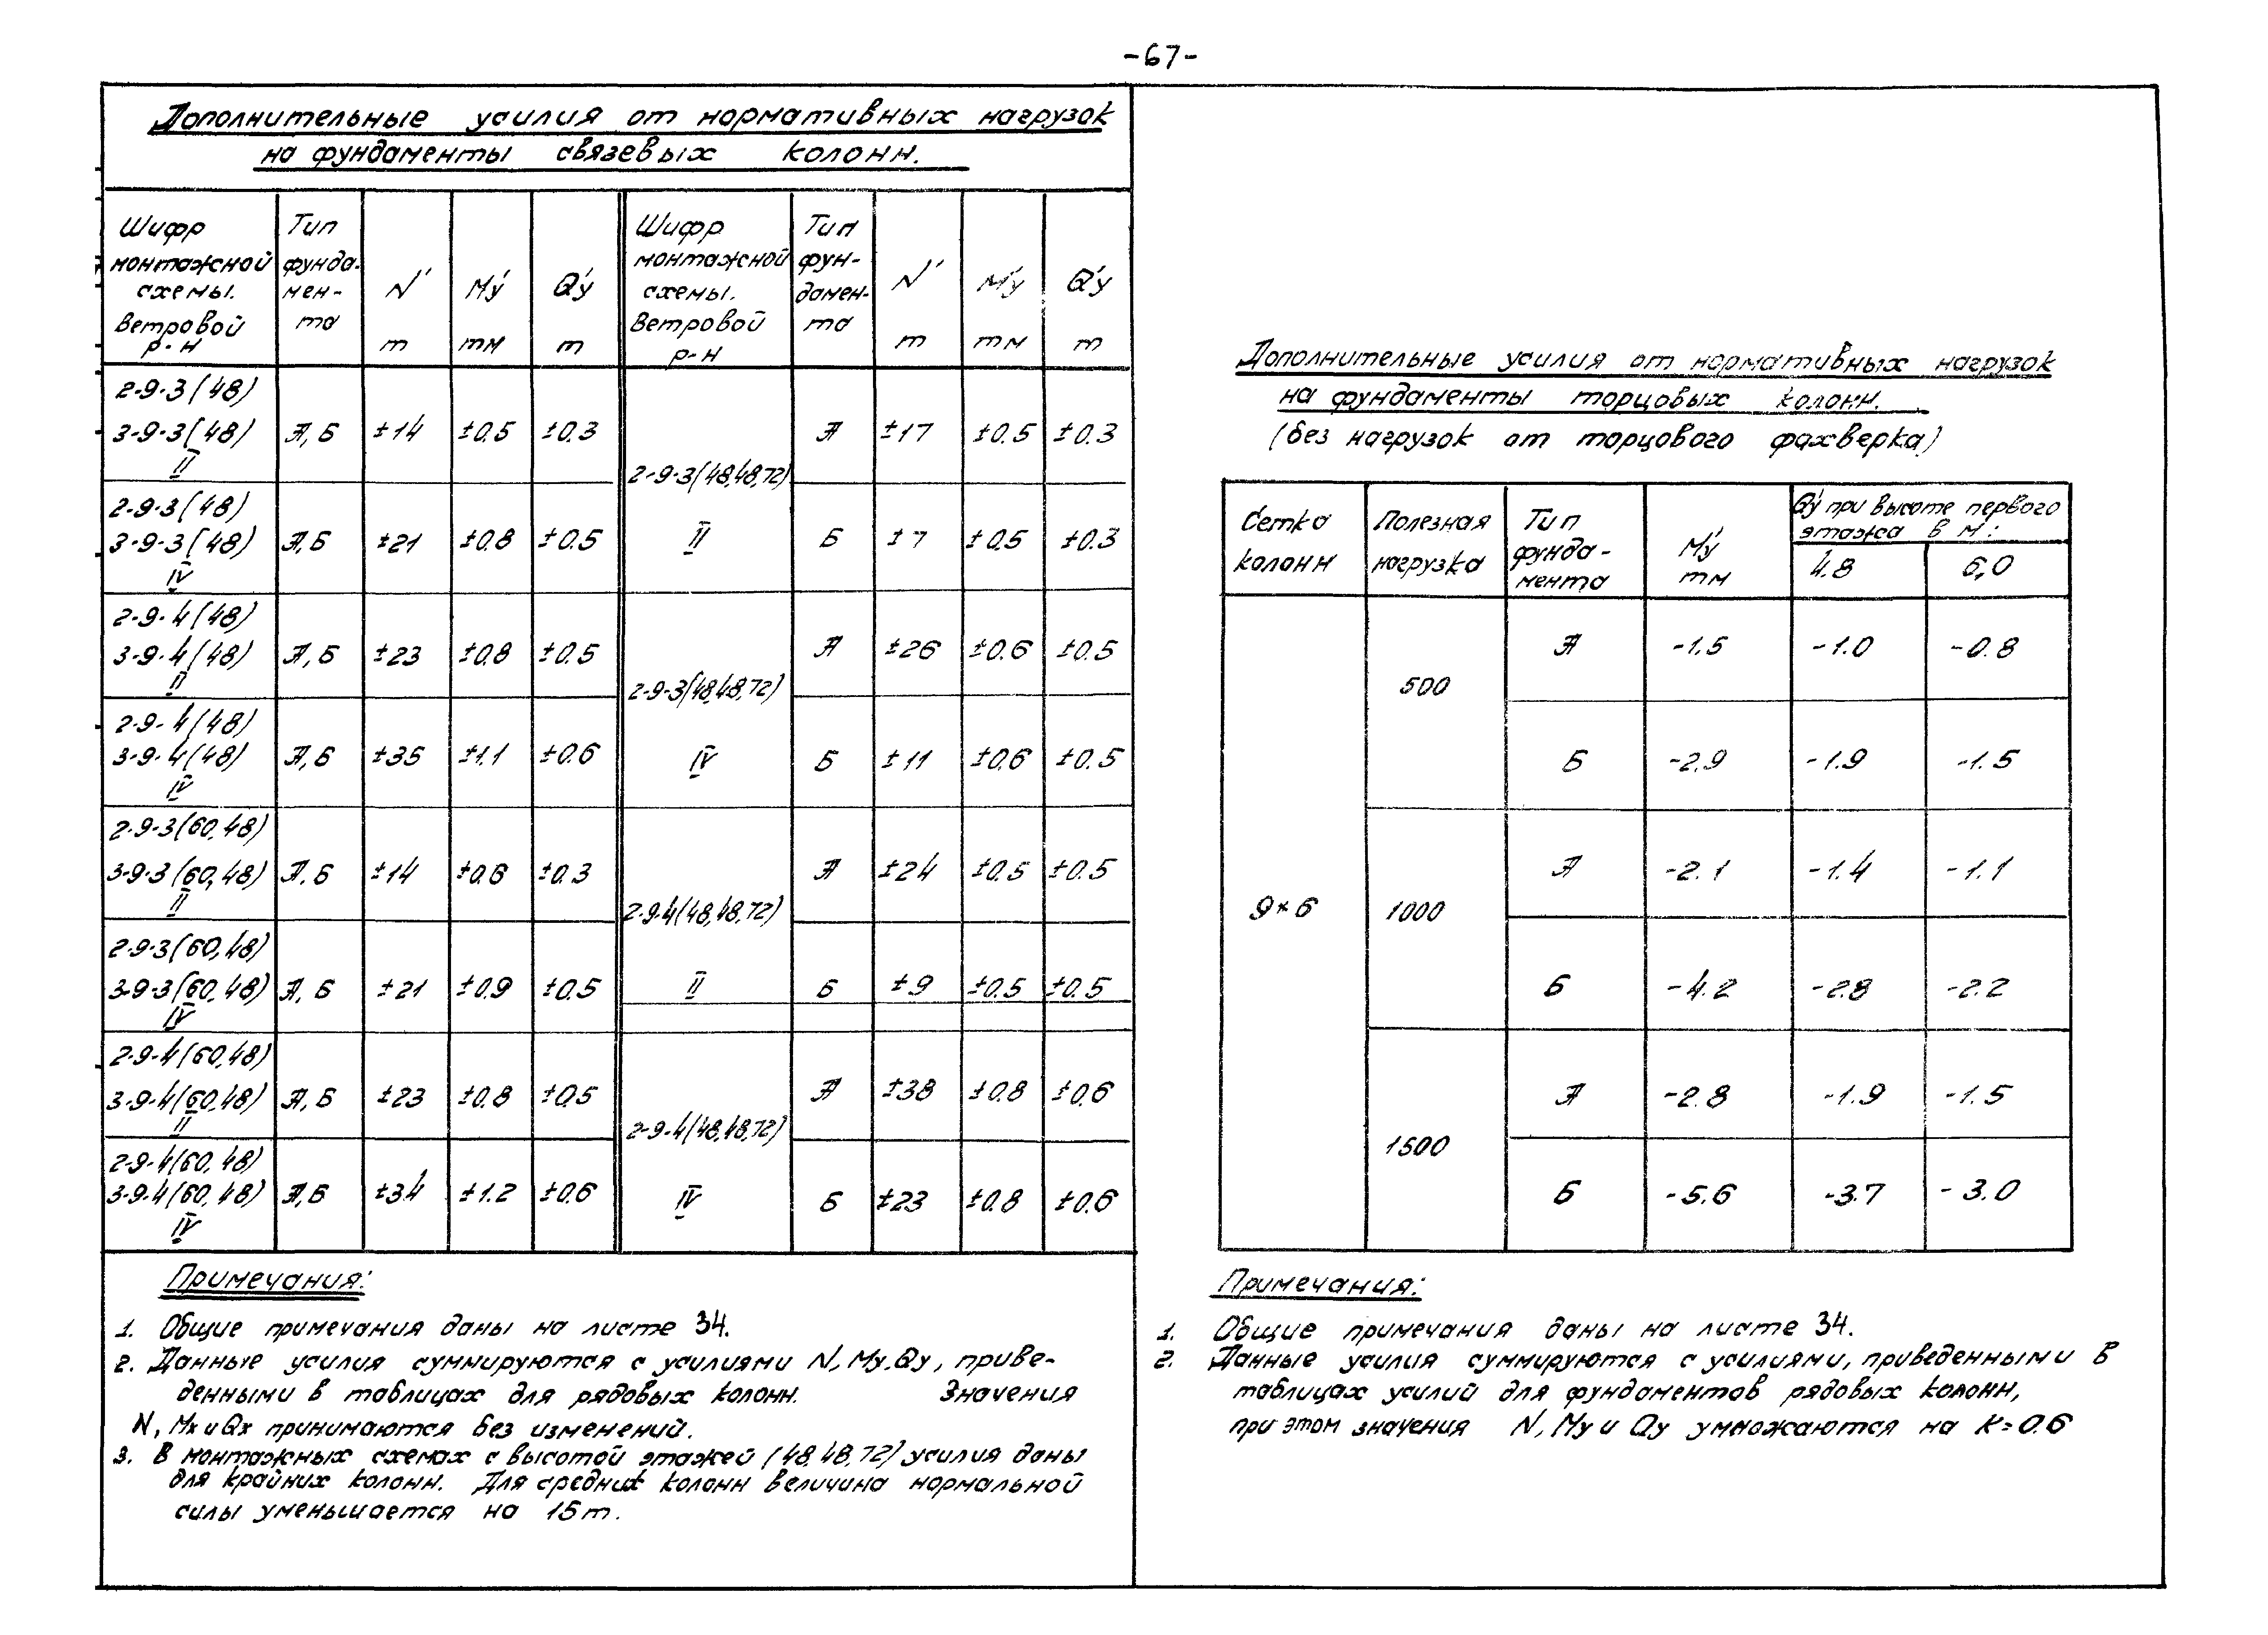 -67-
Дополнительные усилия от нормативных нагрузок
на фундаменты связевых колонн.
Шифр монтажной схемы. Ветровой р-н | Тип фунда-мен-та | N' т | M'y тм | Q'y т | Шифр монтажной схемы. Ветровой р-н | Тип фун-дамен-та | N' т | M'y тм | Q'y т
2-9-3(48)
3-9-3(48) А,Б ±14 ±0.5 ±0.3
II
2-9-3(48)
3-9-3(48) А,Б ±21 ±0.8 ±0.5
IV
2-9-4(48)
3-9-4(48) А,Б ±23 ±0.8 ±0.5
II
2-9-4(48)
3-9-4(48) А,Б ±35 ±1.1 ±0.6
IV
2-9-3(60,48)
3-9-3(60,48) А,Б ±14 ±0.6 ±0.3
II
2-9-3(60,48)
3-9-3(60,48) А,Б ±21 ±0.9 ±0.5
IV
2-9-4(60,48)
3-9-4(60,48) А,Б ±23 ±0.8 ±0.5
II
2-9-4(60,48)
3-9-4(60,48) А,Б ±34 ±1.2 ±0.6
IV
А ±17 ±0.5 ±0.3
2-9-3(48,48,72)
II Б ±7 ±0.5 ±0.3
А ±26 ±0.6 ±0.5
2-9-3(48,48,72)
IV Б ±11 ±0.6 ±0.5
А ±24 ±0.5 ±0.5
2-9-4(48,48,72)
II Б ±9 ±0.5 ±0.5
А ±38 ±0.8 ±0.6
2-9-4(48,48,72)
IV Б ±23 ±0.8 ±0.6
Примечания:
1. Общие примечания даны на листе 34.
2. Данные усилия суммируются с усилиями N, My, Qy, приве-
денными в таблицах для рядовых колонн. Значения
N, Mx и Qx принимаются без изменений.
3. В монтажных схемах с высотой этажей (48,48,72) усилия даны
для крайних колонн. Для средних колонн величина нормальной
силы уменьшается на 15т.
Дополнительные усилия от нормативных нагрузок
на фундаменты торцовых колонн.
(без нагрузок от торцового фахверка)
Сетка колонн | Полезная нагрузка | Тип фунда-мента | M'y тм | Q'y при высоте первого этажа в м: 4.8 | 6,0
А -1.5 -1.0 -0.8
500
Б -2.9 -1.9 -1.5
А -2.1 -1.4 -1.1
9×6 1000
Б -4.2 -2.8 -2.2
А -2.8 -1.9 -1.5
1500
Б -5.6 -3.7 -3.0
Примечания:
1. Общие примечания даны на листе 34.
2. Данные усилия суммируются с усилиями, приведенными в
таблицах усилий для фундаментов рядовых колонн,
при этом значения N, My и Qy умножаются на к=0.6